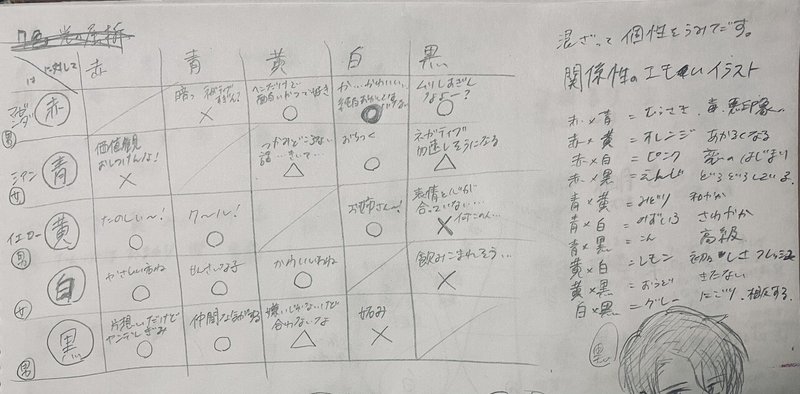 光の屈折
に対して
は
赤
青
黄
白
黒
マゼンダ
赤
男
暗っ
ヘンだけど
面白いかって好き
かっ…かわいい…
○
ムリしすぎん
なよ〜?
シアン
青
女
価値観
おしつけんな!
×
つかみどころない
話…きいて…
△
おちつく
○
ネガティブ
加速しそうになる
△
イエロー
黄
男
たのしい〜!
○
ク〜ル!
○
お姉さん〜!
○
表情と心が
合っていない…
×
白
女
やさしいわね
○
せんさいな子
○
かわいいわね
○
飲みこまれそう…
×
黒
男
片想いだけど
ヤンデレぎみ
○
仲間な気がする
○
嫌いじゃないけど
合わないっよ
△
妬み
×
混ざって個性をうみだす。
関係性のエモいイラスト
赤×青=むらさき 毒、悪印象
赤×黄=オレンジ あかるくなる
赤×白=ピンク 恋のはじまり
赤×黒=えんじ どろどろしている
青×黄=みどり 和やか
青×白=みずいろ さわやか
青×黒=こん 高級
黄×白=レモン フレッシュ
黄×黒=おうど きたない
白×黒=グレー にごり、相反する
黒